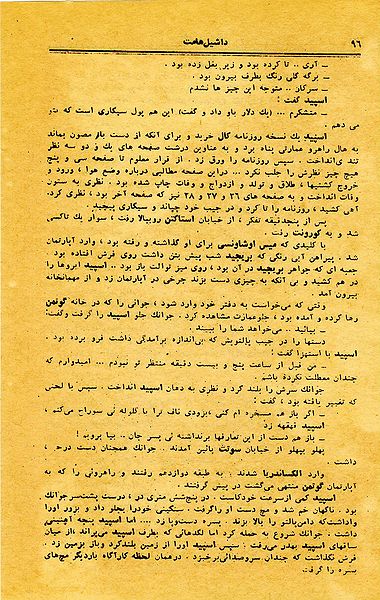 ۹۶
داشیل هامت
ـ آری .. تا کرده بود و زیر بغل زده بود .
ـ برگه گلی رنگ بطرف بیرون بود .
ـ سرکار .. متوجه این چیز ها نشدم
اسپید گفت :
ـ متشکرم ... (یك دلار باو داد و گفت) این هم پول سیگاری است که بتو
می دهم .
اسپید یك نسخه روزنامه کال خرید و برای آنکه از دست باز مصون بماند
به هال راهرو عمارتی پناه برد و به عناوین درشت صفحه های یك و دو سه نظر
تندی انداخت . سپس روزنامه را ورق زد . از قرار معلوم تا صفحه سی و پنج
هیچ چیز نظرش را جلب نکرد ... در این صفحه مطالبی درباره وضع هوا ، ورود و
خروج کشتیها ، طلاق و تولد و ازدواج و وفات چاپ شده بود . نظری به ستون
وفات انداخت و به صفحه های ۳۶ و ۳۷ و ۳۸ نیز که صفحه آخر بود ، نظری کرد.
آهی کشید ، روزنامه را تا کرد و در جیب خود چپاند و سیگاری پیچید.
پس از پنجدقیقه تفکر ، از خیابان استاکتن روببالا رفت ، سوار یك تاکسی
شد و به کورونت رفت .
با کلیدی که میس اوشاونسی برای او گذاشته و رفته بود ، وارد آپارتمان
شد . پیراهن آبی رنگی که بریجید شب پیش بتن داشت روی فرش افتاده بود .
جعبه ای که جواهر بریجید در آن بود ، روی میز توالت باز بود .. اسپید ابروها را
در هم کشید و بی آنکه به چیزی دست بزند چرخی در آپارتمان زد و از مهمانخانه
بیرون آمد .
وقتی که می خواست به دفتر خود وارد شود ، جوانی را که در خانه گوتمن
رها کرده و آمده بود ، جلوعمارت مشاهده کرد . جوانك جلو اسپید را گرفت وگفت:
ـ بیائید .. می خواهد شما را ببیند .
دستها را در جیب پالتویش که بی اندازه برآمدگی داشت فرو برده بود .
اسپید با استهزا گفت :
ـ من قبل از ساعت پنج و بیست دقیقه منتظر تو نبودم ... امیدوارم که
چندان معطلت نکرده باشم .
جوانك سرش را بلند کرد و نظری به دهان اسپید انداخت . سپس با لحنی
که تغییر یافته بود ، گفت :
ـ اگر باز هم مسخره ام کنی ، بزودی ناف ترا با گلوله ئی سوراخ می کنم ،
اسپید قهقهه زد
ـ باز هم دست از این تعارفها برنداشته ئی پسر جان .. بیا برویم !
پهلو بپهلو از خیابان سوتت بالاتر آمدند .. جوانك همچنان دست در جیب ،
داشت .
وارد الکساندریا شدند . به طبقه دوازدهم رفتند و راهروئی را که به
آپارتمان گوتمن منتهی میگشت در پیش گرفتند .
اسپید کمی ازسرعت خودکاست . در پنج شش متری در ، درست پشت سر جوانك
بود . ناگهان خم شد و مچ دست او را گرفت . سنگینی خود را بجلو داد و بزور اورا
واداشت که دامن پالتو را بالا بزند . پسره دست و پا زد .... اما اسپید پنجه آهنینی
داشت . جوانك شروع به حمله کرد اما لگدهائی که بطرف اسپید می پراند ، از میان
ساقهای اسپید بهدر می رفت . سپس اسپید اورا از زمین بلند کرد و باز بزمین زد .
فرش نگذاشت که چندان سروصدائی برخیزد . در همان لحظه کارآگاه باردیگر مچ های
پسره را گرفت